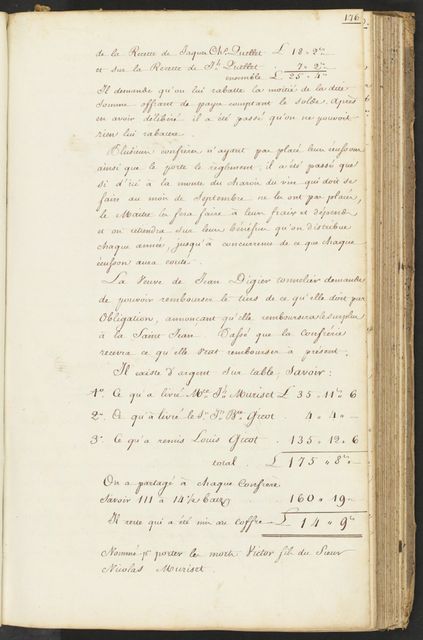 176
de la Recette de Jaques Chs. Quellet £ 18 „ 2„
et sur la Recette de Jb. Quellet 7 „ 2„
ensemble £ 25 „ 4„
Il demande qu'on lui rabatte la moitié de la dite
somme offrant de payer comptant le solde. Après
en avoir délibéré il a été passé qu'on ne pouvoit
rien lui rabattre.
Plusieurs confrères n'ayant pas placé leur écusson
ainsi que le porte le règlement, il a été passé que
si d'ici à la du vin qui doit se
faire au mois de Septembre ne le ont pas placés,
le Maitre les fera faire à leur frais et dépends
et on retiendra sur leur bénéfice qu'on distribue
chaque année, jusqu'à concurrence de ce que chaque
écusson aura couté.
La Veuve de Jean Digier demande
de pouvoir rembourser le tiers de ce qu'elle doit par
Obligation, annonçant qu'elle remboursera le surplus
à la Saint Jean. Passé que la confrérie
recevra ce qu'elle veut rembourser à présent.
Il existe d'argent sur table, Savoir:
1o. Ce qu'a livré Mre. Jb. Muriset £ 35 „ 11 „ 6
2o. Ce qu'a livré le Sr. Jn. Bte. Gicot . 4 „ 4 „ —
3o. Ce qu'a remis Louis Gicot . 135 „ 12 „ 6
total . £ 175 „ 8 „ —
On a partagé à chaque Confrère
Savoir 111 à 14½ batz 160 „ 19 –
Il reste qui a été mis au coffre £ 14 „ 9„
Nommé pr. porter les morts Victor fils du Sieur
Nicolas Muriset.